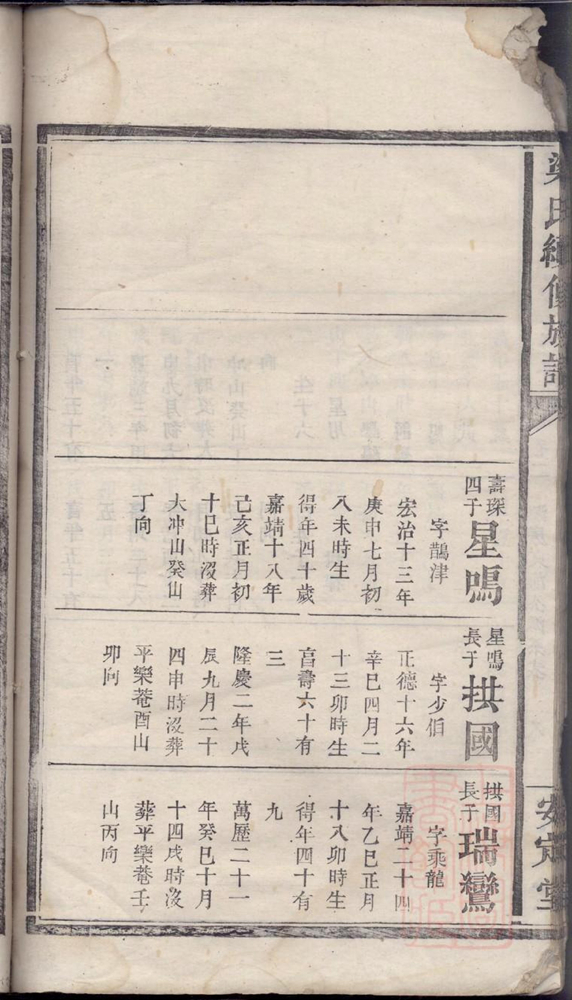 梁氏續修族譜
安定堂
壽琛
四子
星鳴
字鵲津
宏治十三年
庚申七月初
八未時生
得年四十歲
嘉靖十八年
己亥正月初
十巳時沒葬
大冲山癸山
丁向
星鳴
長子
拱國
字少伯
正德十六年
辛巳四月二
十三卯時生
享壽六十有
三
隆慶二年戊
辰九月二十
四申時沒葬
平樂菴酉山
卯向
拱國
長子
瑞鸞
字乘龍
嘉靖二十四
年乙巳正月
十八卯時生
得年四十有
九
萬歷二十一
年癸巳十月
十四戌時沒
葬平樂菴壬
山丙向